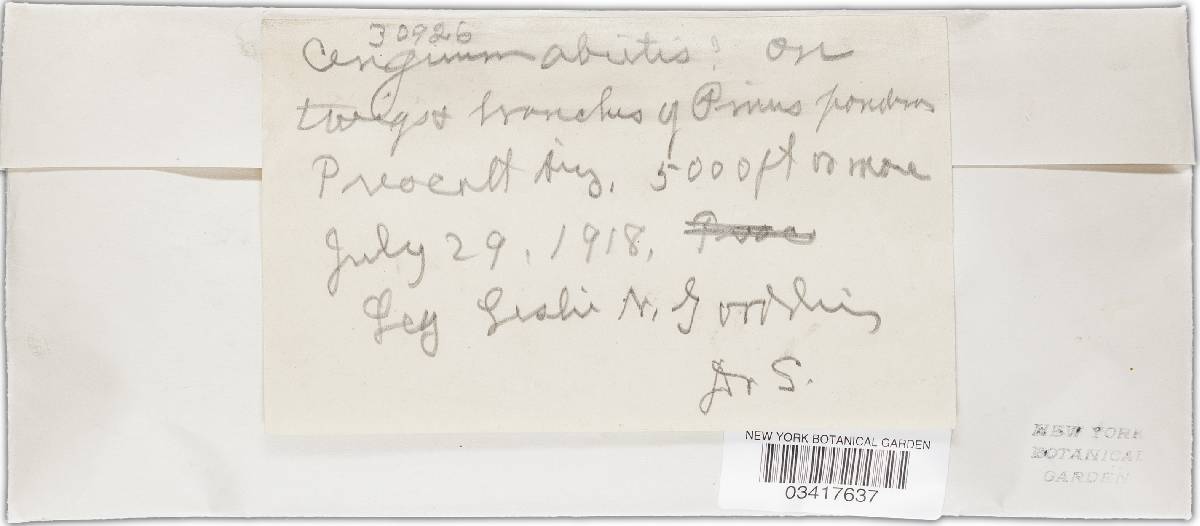 30926
Cengium abietis? on
twigs & branches of Pinus ponderos
Prescott Ariz. 5000 ft or more
July 29, 1918,
Leg Leslie N. Goodding
Dr S.
NEW YORK BOTANICAL GARDEN
03417637
NEW YORK
BOTANICAL
GARDEN